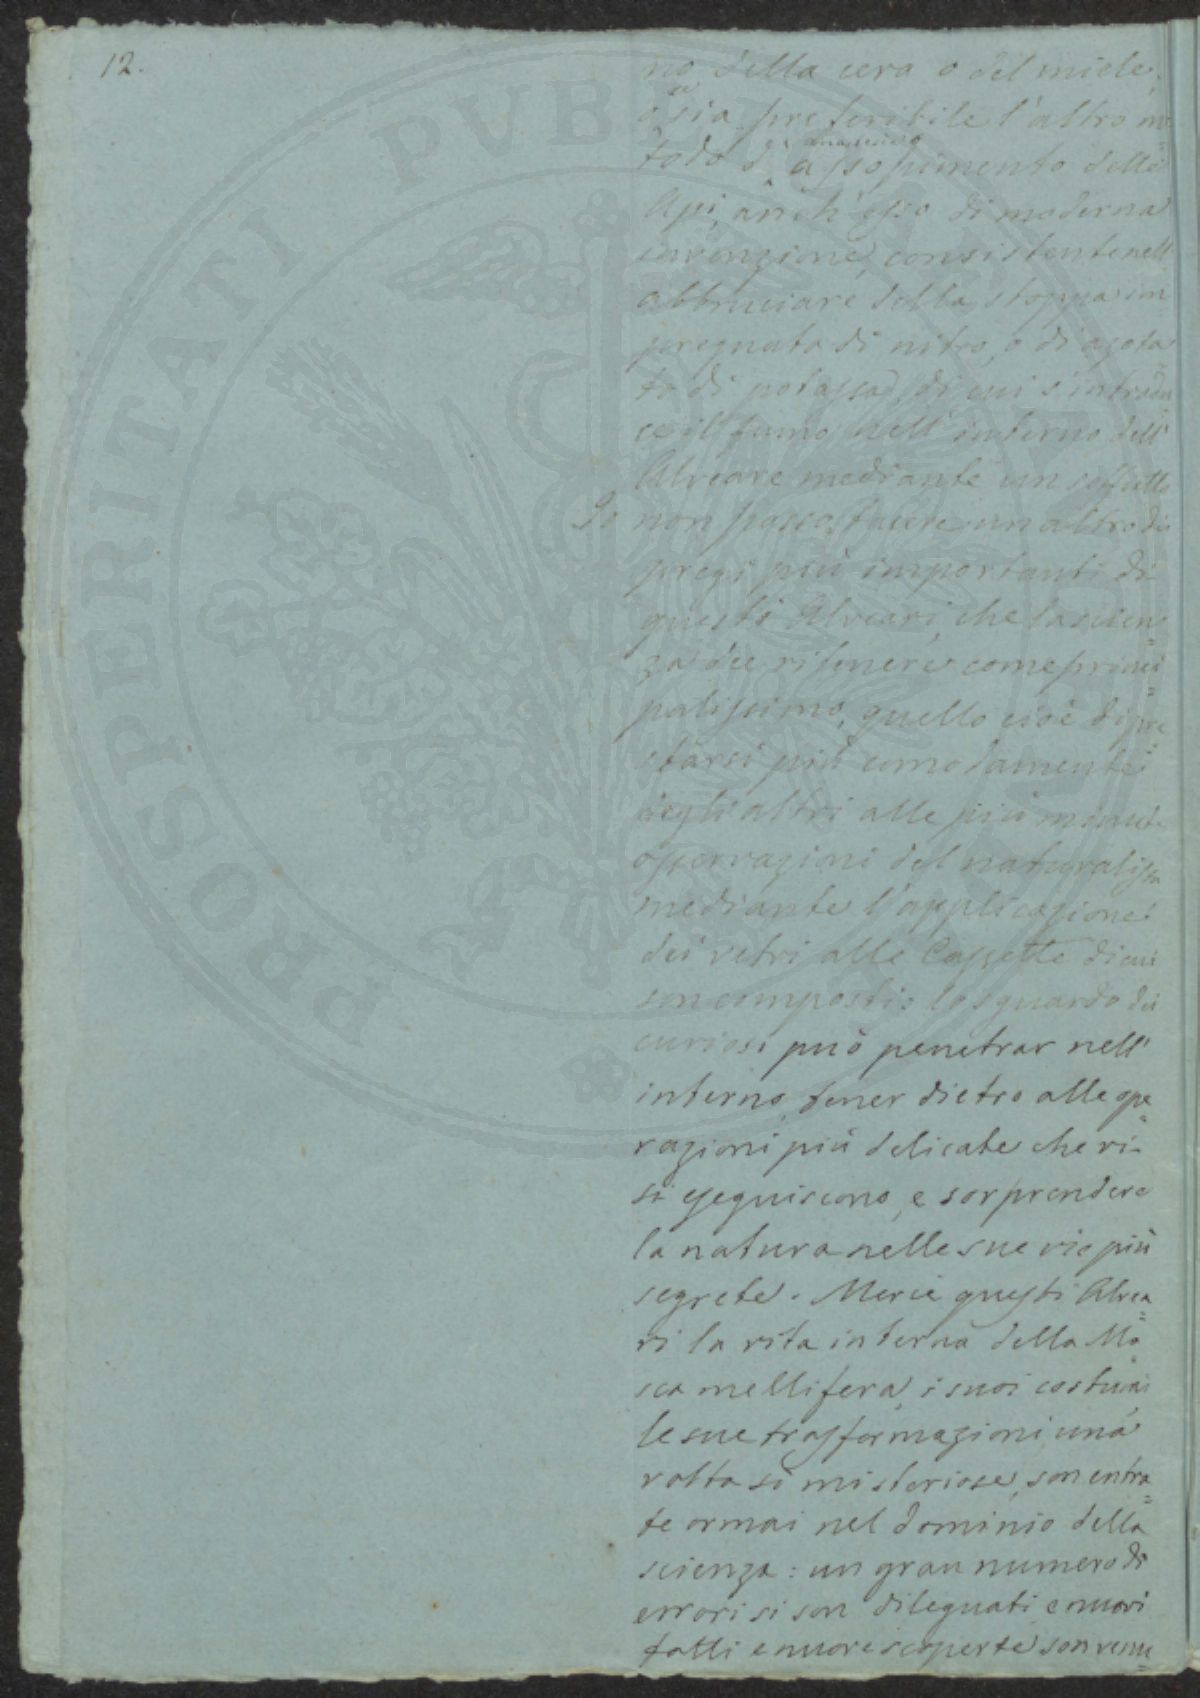 12.
no della cera o del miele,
o sia preferibile l'altro me=
todo d' assopimento delle
Api, anch'esso di moderna
invenzione, consistente nell'
abbruciare della stoppa im
pregnata di nitro, o di azota=
to di potassa, di cui s'introdu
ce il fumo nell'interno dell'
Alveare mediante un soffietto
Io non posso tacere un altro dei
pregi più importanti di
questi Alveari, che la scien=
za dee ritenere come princi=
palissimo, quello cioè di pre=
starsi più comodamente
degli altri alle più minute
osservazioni del naturalista
mediante l'applicazione
dei vetri alle Cassette di cui
son composti: lo sguardo dei
curiosi può penetrar nell'
interno, tener dietro alle ope=
razioni più delicate che vi
si eseguiscono, e sorprendere
la natura nelle sue vie più
segrete. Mercè questi Alvea=
ri la vita interna della Mo
sca mellifera, i suoi costumi
le sue trasformazioni una
volta sì misteriose, son entra=
te ormai nel dominio della
scienza: un gran numero di
errori si son dileguati, e nuovi
fatti e nuove scoperte son venu=
PROSPERITATI PVBLICAE